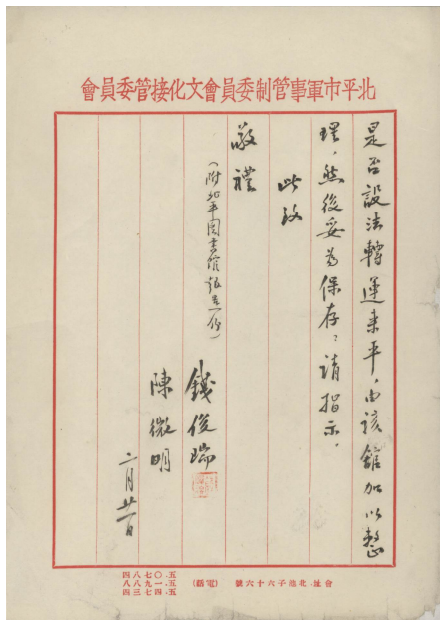 北平市軍事管制委員會文化接管委員會
是否設法轉運來平,由該館加以整
理,然後妥為保存?請指示。
此致
敬禮
(附北平圖書館報告一份)
錢俊瑞
陳微明
二月廿一日
會址:北池子六十六號 (電話)
五.〇七八四
五.一九八八
五.四七三四